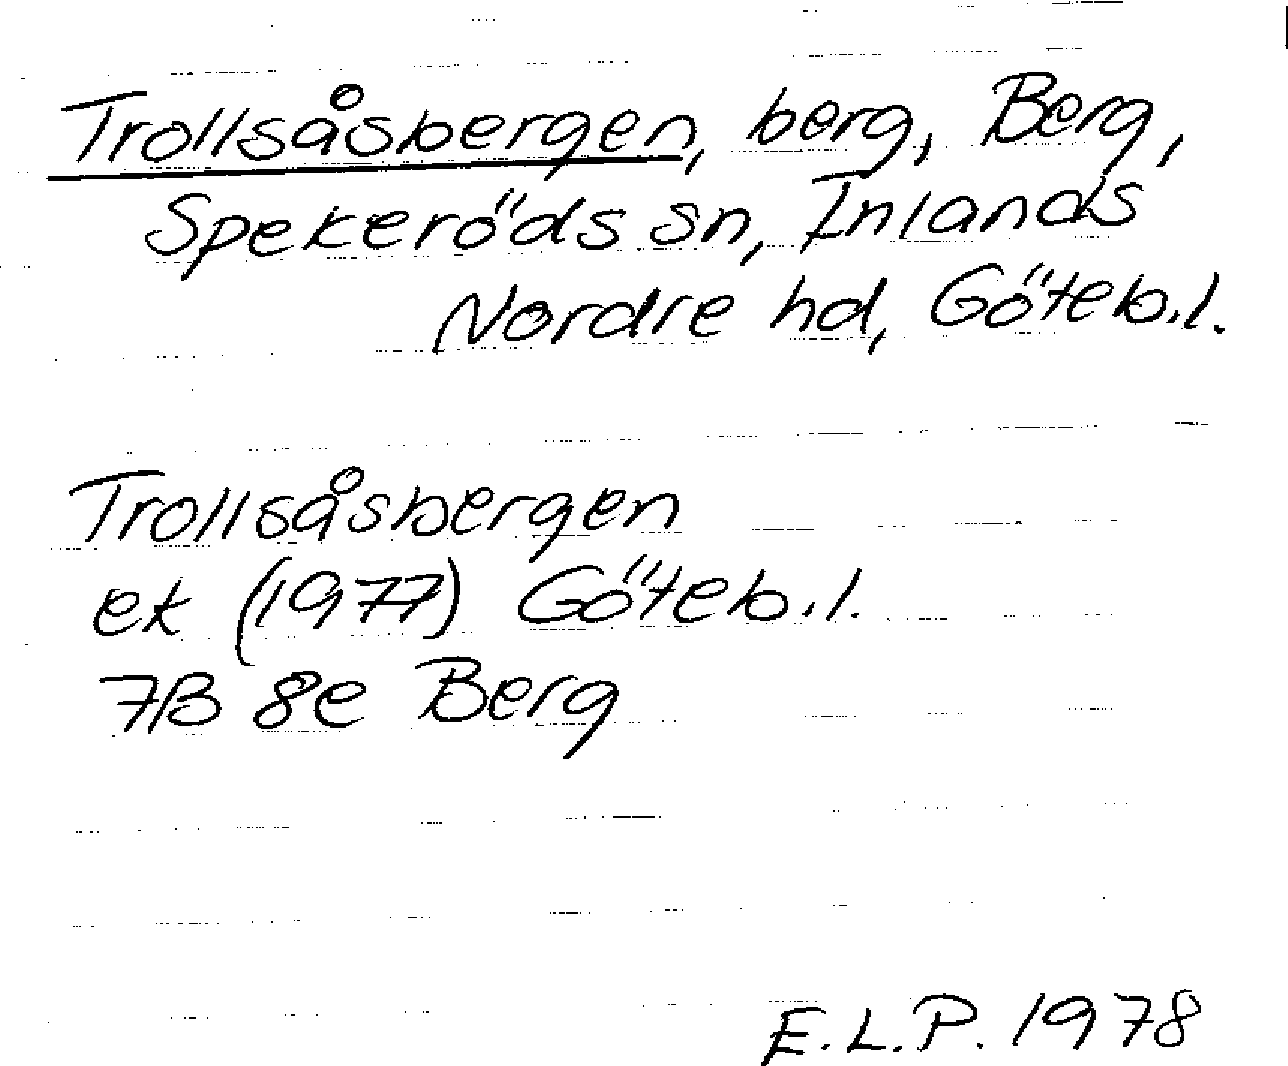 Trollsåsbergen, berg, Berg,
Spekeröds sn, Inlands
Nordre hd, Göteb.l.
Trollsåsbergen
ek (1977) Göteb.l.
7B 8e Berg
E.L.P. 1978